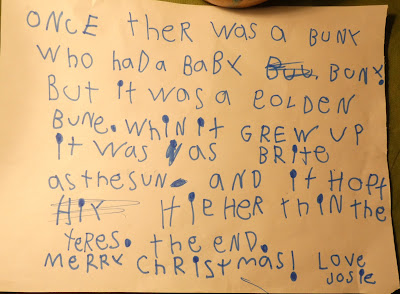 ONCE ther was a BUNY
Who haD a BaBY BUNY.
BUt it was a GOLDEN
BUNE. WhiN it GREW UP
it was as BRitE
as the SUN. AND it HOPT
HiY HiEHER thiN the
tERES. the END.
MERRY ChRiStmas! LOVE
JOSiE